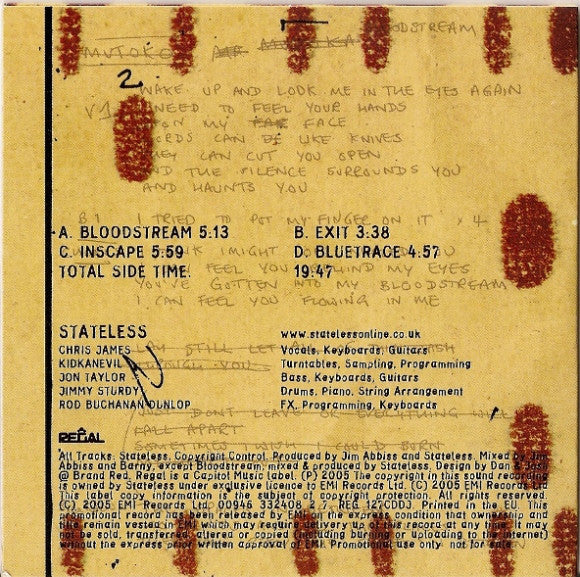 BLOODSTREAM
MUTOKO
2
WAKE UP AND LOOK ME IN THE EYES AGAIN
V1 NEED TO FEEL YOUR HANDS
ON MY FACE
WORDS CAN BE LIKE KNIVES
THEY CAN CUT YOU OPEN
AND THE SILENCE SURROUNDS YOU
AND HAUNTS YOU
B1 I TRIED TO PUT MY FINGER ON IT x 4
A. BLOODSTREAM 5:13 B. EXIT 3:38
C. INSCAPE 5:59 D. BLUETRACE 4:57
TOTAL SIDE TIME: 19:47
I MIGHT
FEEL YOU BEHIND MY EYES
YOU'VE GOTTEN INTO MY BLOODSTREAM
I CAN FEEL YOU FLOWING IN ME
STATELESS www.statelessonline.co.uk
CHRIS JAMES Vocals, Keyboards, Guitars
KIDKANEVIL Turntables, Sampling, Programming
JON TAYLOR Bass, Keyboards, Guitars
JIMMY STURDY Drums, Piano, String Arrangement
ROD BUCHANAN DUNLOP FX, Programming, Keyboards
DONT LEAVE OR EVERYTHING WILL
FALL APART
SOMETIMES I WISH I COULD BURN
REGAL
All Tracks: Stateless. Copyright Control. Produced by Jim Abbiss and Stateless. Mixed by Jim
Abbiss and Barny, except Bloodstream, mixed & produced by Stateless. Design by Dan & Jose
@ Brand Red. Regal is a Capitol Music label. (P) 2005 The copyright in this sound recording
is owned by Stateless under exclusive licence to EMI Records Ltd. (C) 2005 EMI Records Ltd.
This label copy information is the subject of copyright protection. All rights reserved.
(C) 2005 EMI Records Ltd. 00946 332408 2 7. REG 127CDDJ. Printed in the EU. This
promotional record has been released by EMI on the express condition that ownership and
title remain vested in EMI which may require delivery up of this record at any time. It may
not be sold, transferred, altered or copied (including burning or uploading to the internet)
without the express prior written approval of EMI. Promotional use only - not for sale.